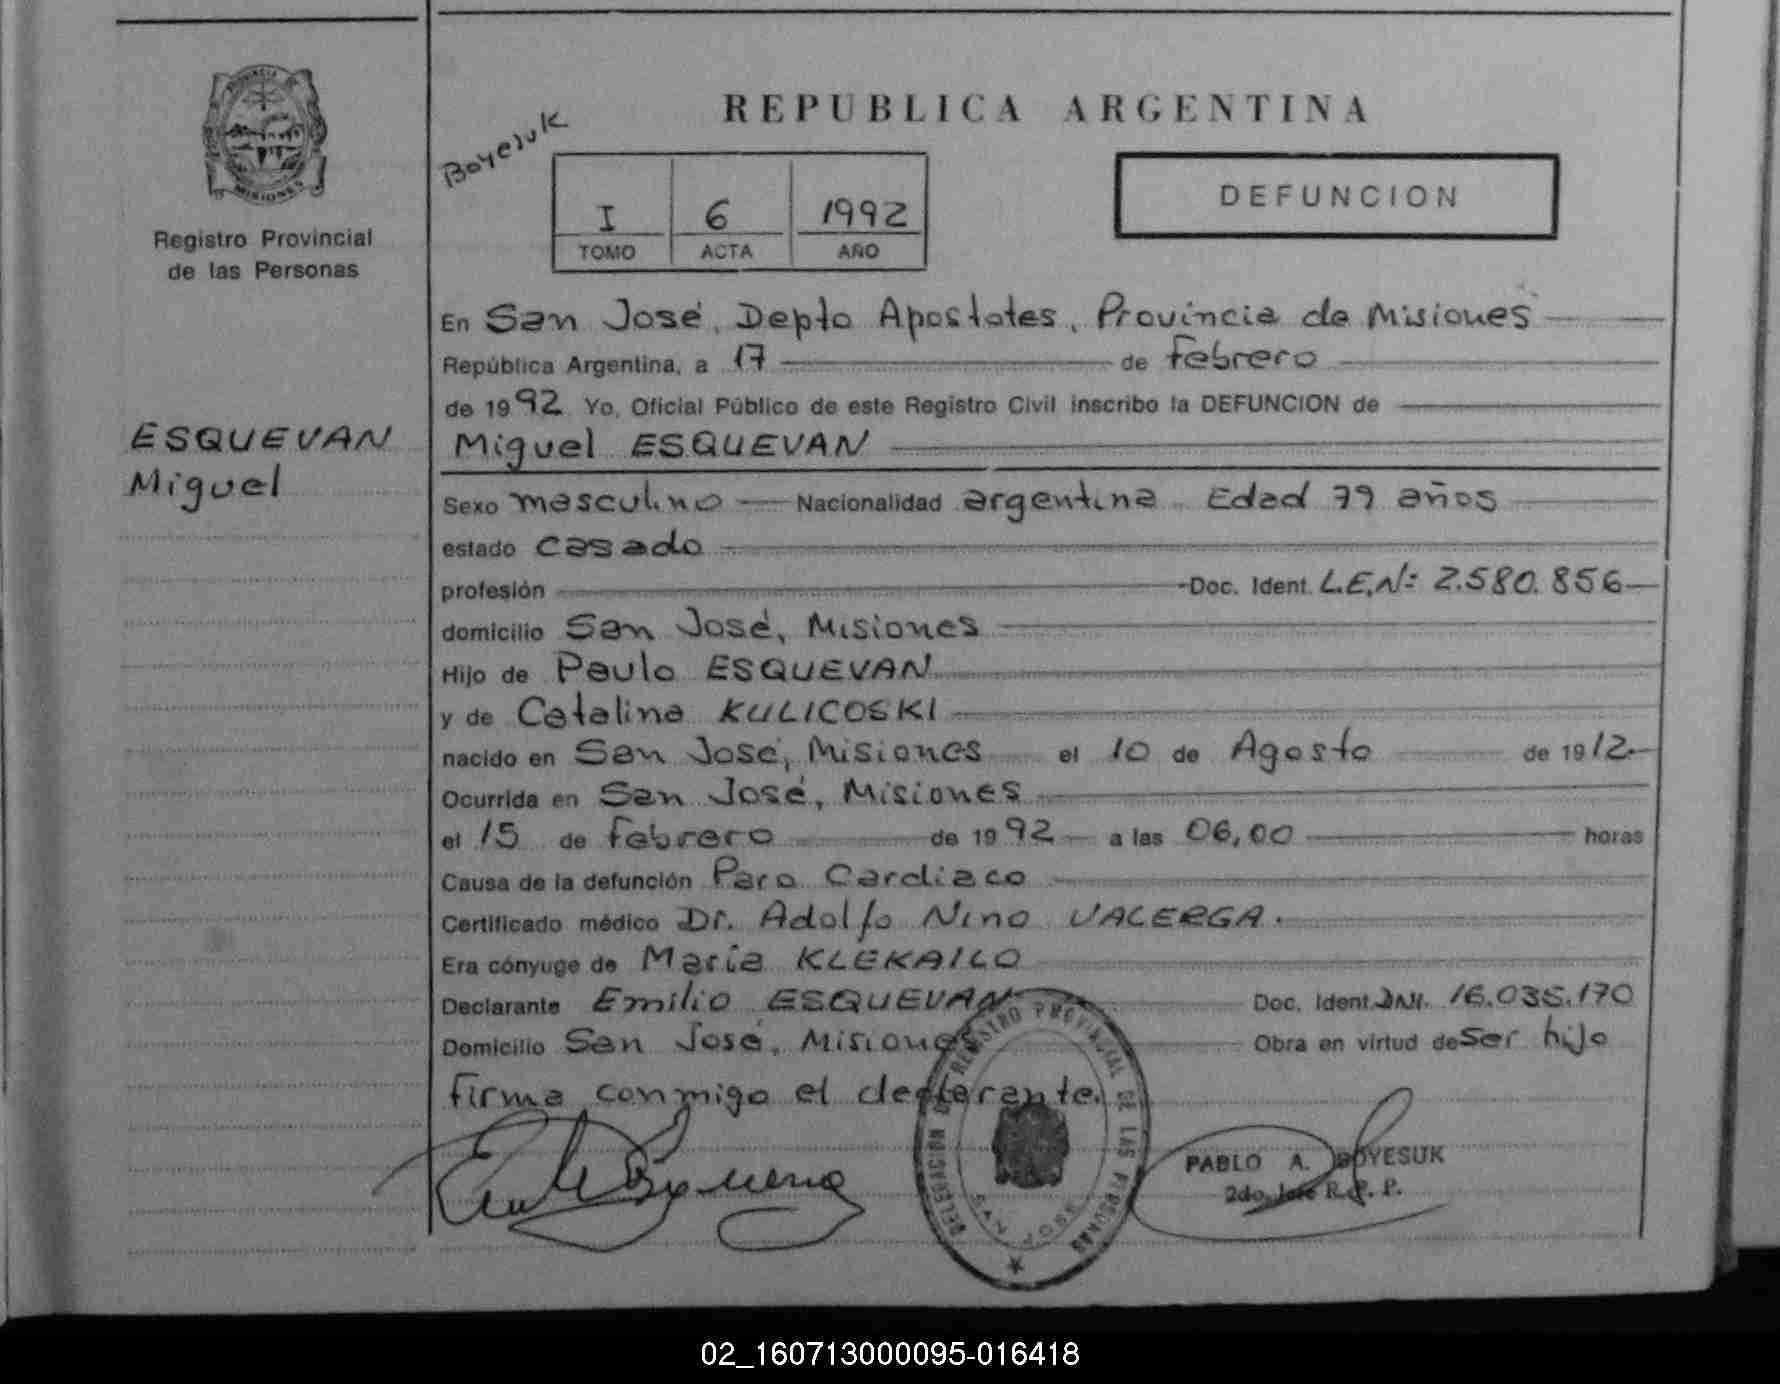 REPUBLICA ARGENTINA
PROVINCIA DE
MISIONES
Registro Provincial
de las Personas
Boyesuk
I 6 1992
TOMO ACTA AÑO
DEFUNCION
En San José, Depto Apostotes, Provincia de Misiones
República Argentina, a 17 de febrero
de 1992 Yo, Oficial Público de este Registro Civil inscribo la DEFUNCION de
ESQUEVAN
Miguel
Miguel ESQUEVAN
Sexo masculino Nacionalidad argentina Edad 79 años
estado casado
profesión Doc. Ident. L.E.Nº 2.580.856
domicilio San José, Misiones
Hijo de Paulo ESQUEVAN
y de Catalina KULICOSKI
nacido en San José, Misiones el 10 de Agosto de 1912.
Ocurrida en San José, Misiones
el 15 de febrero de 1992 a las 06,00 horas
Causa de la defunción Paro Cardiaco
Certificado médico Dr. Adolfo Nino VALERGA.
Era cónyuge de María KLEKAILO
Declarante Emilio ESQUEVAN Doc. Ident. DNI. 16.035.170
Domicilio San José, Misiones Obra en virtud de ser hijo
firma conmigo el declarante.
DELEGACION REGISTRO PROVINCIAL DE LAS PERSONAS
SAN JOSE
PABLO A. BOYESUK
2do. Jefe R. P. P.
02_160713000095-016418